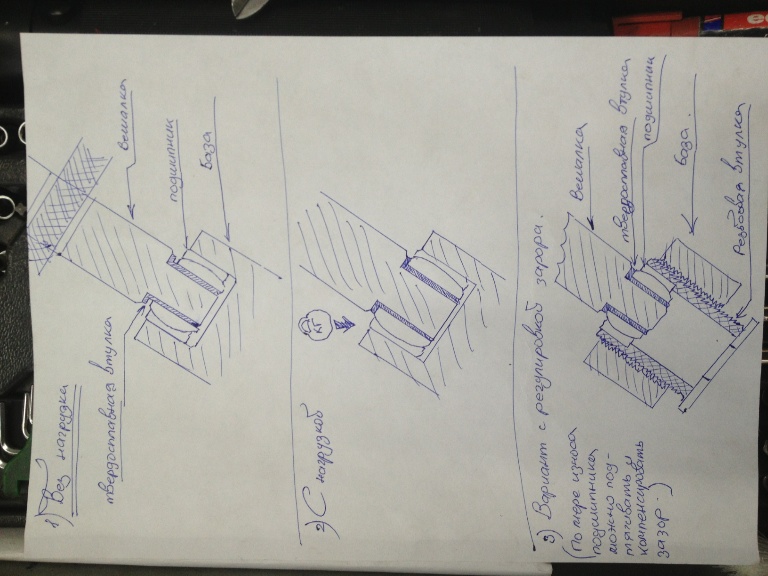 1) Без нагрузки
твердосплавная втулка
вешалка
подшипник
база
2) С нагрузкой
кг
3) Вариант с регулировкой зазора.
(По мере износа
подшипника
можно под-
тягивать и
компенсировать
зазор.)
Вешалка
твердосплавная втулка
подшипник
база.
Резьбовая втулка